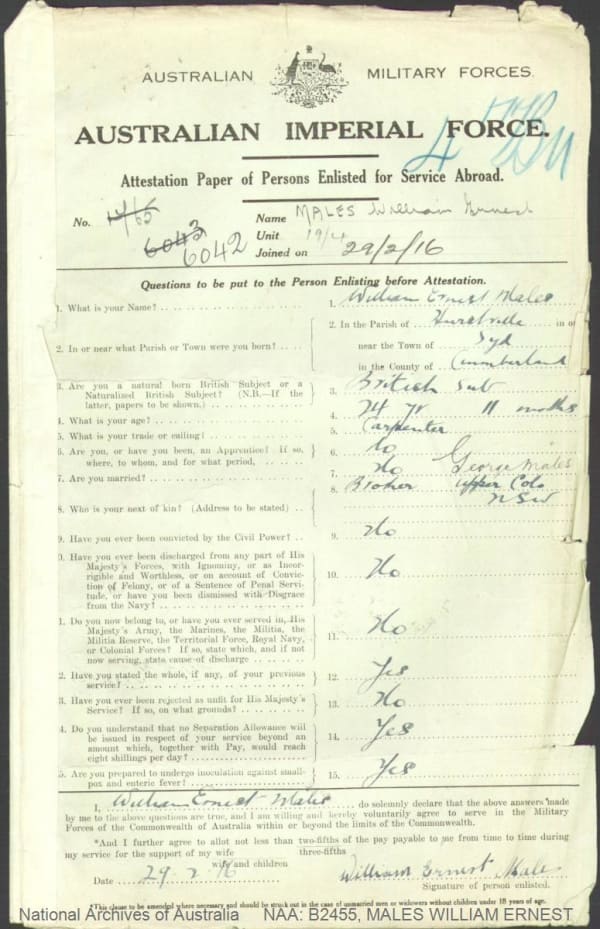 AUSTRALIAN MILITARY FORCES.
AUSTRALIAN IMPERIAL FORCE.
Attestation Paper of Persons Enlisted for Service Abroad.
No. 6043 6042
Name MALES William Ernest
Unit 19/4
Joined on 29/2/16
Questions to be put to the Person Enlisting before Attestation.
1. What is your Name?
1. William Ernest Males
2. In or near what Parish or Town were you born?
2. In the Parish of Hurstville in or
near the Town of Syd
in the County of Cumberland
3. Are you a natural born British Subject or a
Naturalized British Subject? (N.B.—If the
latter, papers to be shown.)
3. British Sub
4. What is your age?
4. 24 yr 11 months
5. What is your trade or calling?
5. Carpenter
6. Are you, or have you been, an Apprentice? If so,
where, to whom, and for what period,
6. No
7. Are you married?
7. No
8. Who is your next of kin? (Address to be stated)
George Males
8. Brother Upper Colo
NSW
9. Have you ever been convicted by the Civil Power?
9. No
0. Have you ever been discharged from any part of His
Majesty's Forces, with Ignominy, or as Incor-
rigible and Worthless, or on account of Convic-
tion of Felony, or of a Sentence of Penal Servi-
tude, or have you been dismissed with Disgrace
from the Navy?
10. No
1. Do you now belong to, or have you ever served in, His
Majesty's Army, the Marines, the Militia, the
Militia Reserve, the Territorial Force, Royal Navy,
or Colonial Forces? If so, state which, and if not
now serving, state cause of discharge
11. No
2. Have you stated the whole, if any, of your previous
service?
12. Yes
3. Have you ever been rejected as unfit for His Majesty's
Service? If so, on what grounds?
13. No
4. Do you understand that no Separation Allowance will
be issued in respect of your service beyond an
amount which, together with Pay, would reach
eight shillings per day?
14. Yes
5. Are you prepared to undergo inoculation against small-
pox and enteric fever?
15. Yes
I, William Ernest Males do solemnly declare that the above answers made
by me to the above questions are true, and I am willing and hereby voluntarily agree to serve in the Military
Forces of the Commonwealth of Australia within or beyond the limits of the Commonwealth.
*And I further agree to allot not less than two-fifths of the pay payable to me from time to time during
three-fifths
my service for the support of my wife
wife and children
Date 29 2 16
William Ernest Males
Signature of person enlisted.
*This clause to be amended where necessary and should be struck out in the case of unmarried men or widowers without children under 18 years of age.
National Archives of Australia NAA: B2455, MALES WILLIAM ERNEST